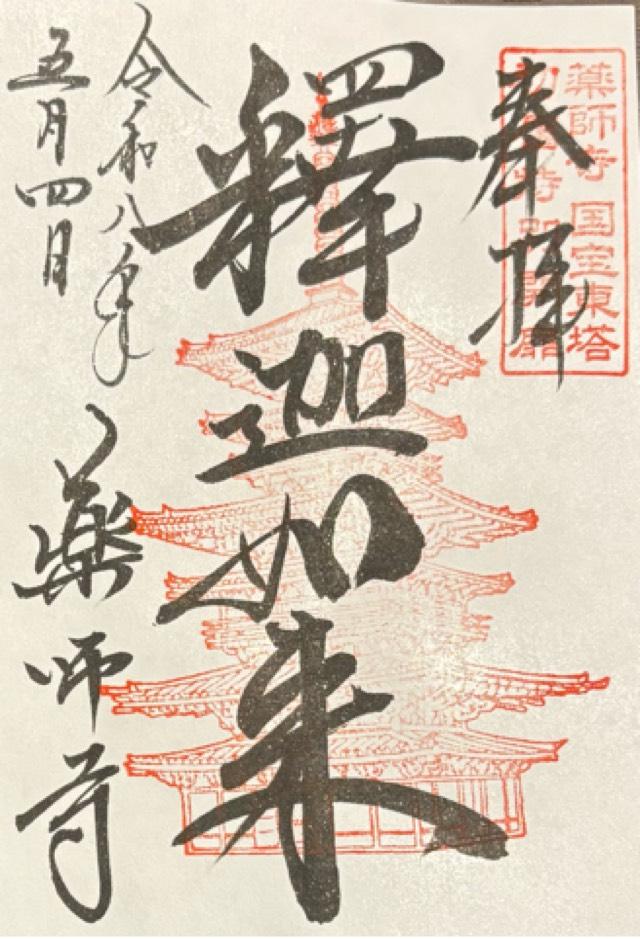 薬師寺 国宝東塔
特別開扉
奉拝
釋迦如来
令和八年
五月四日
薬師寺